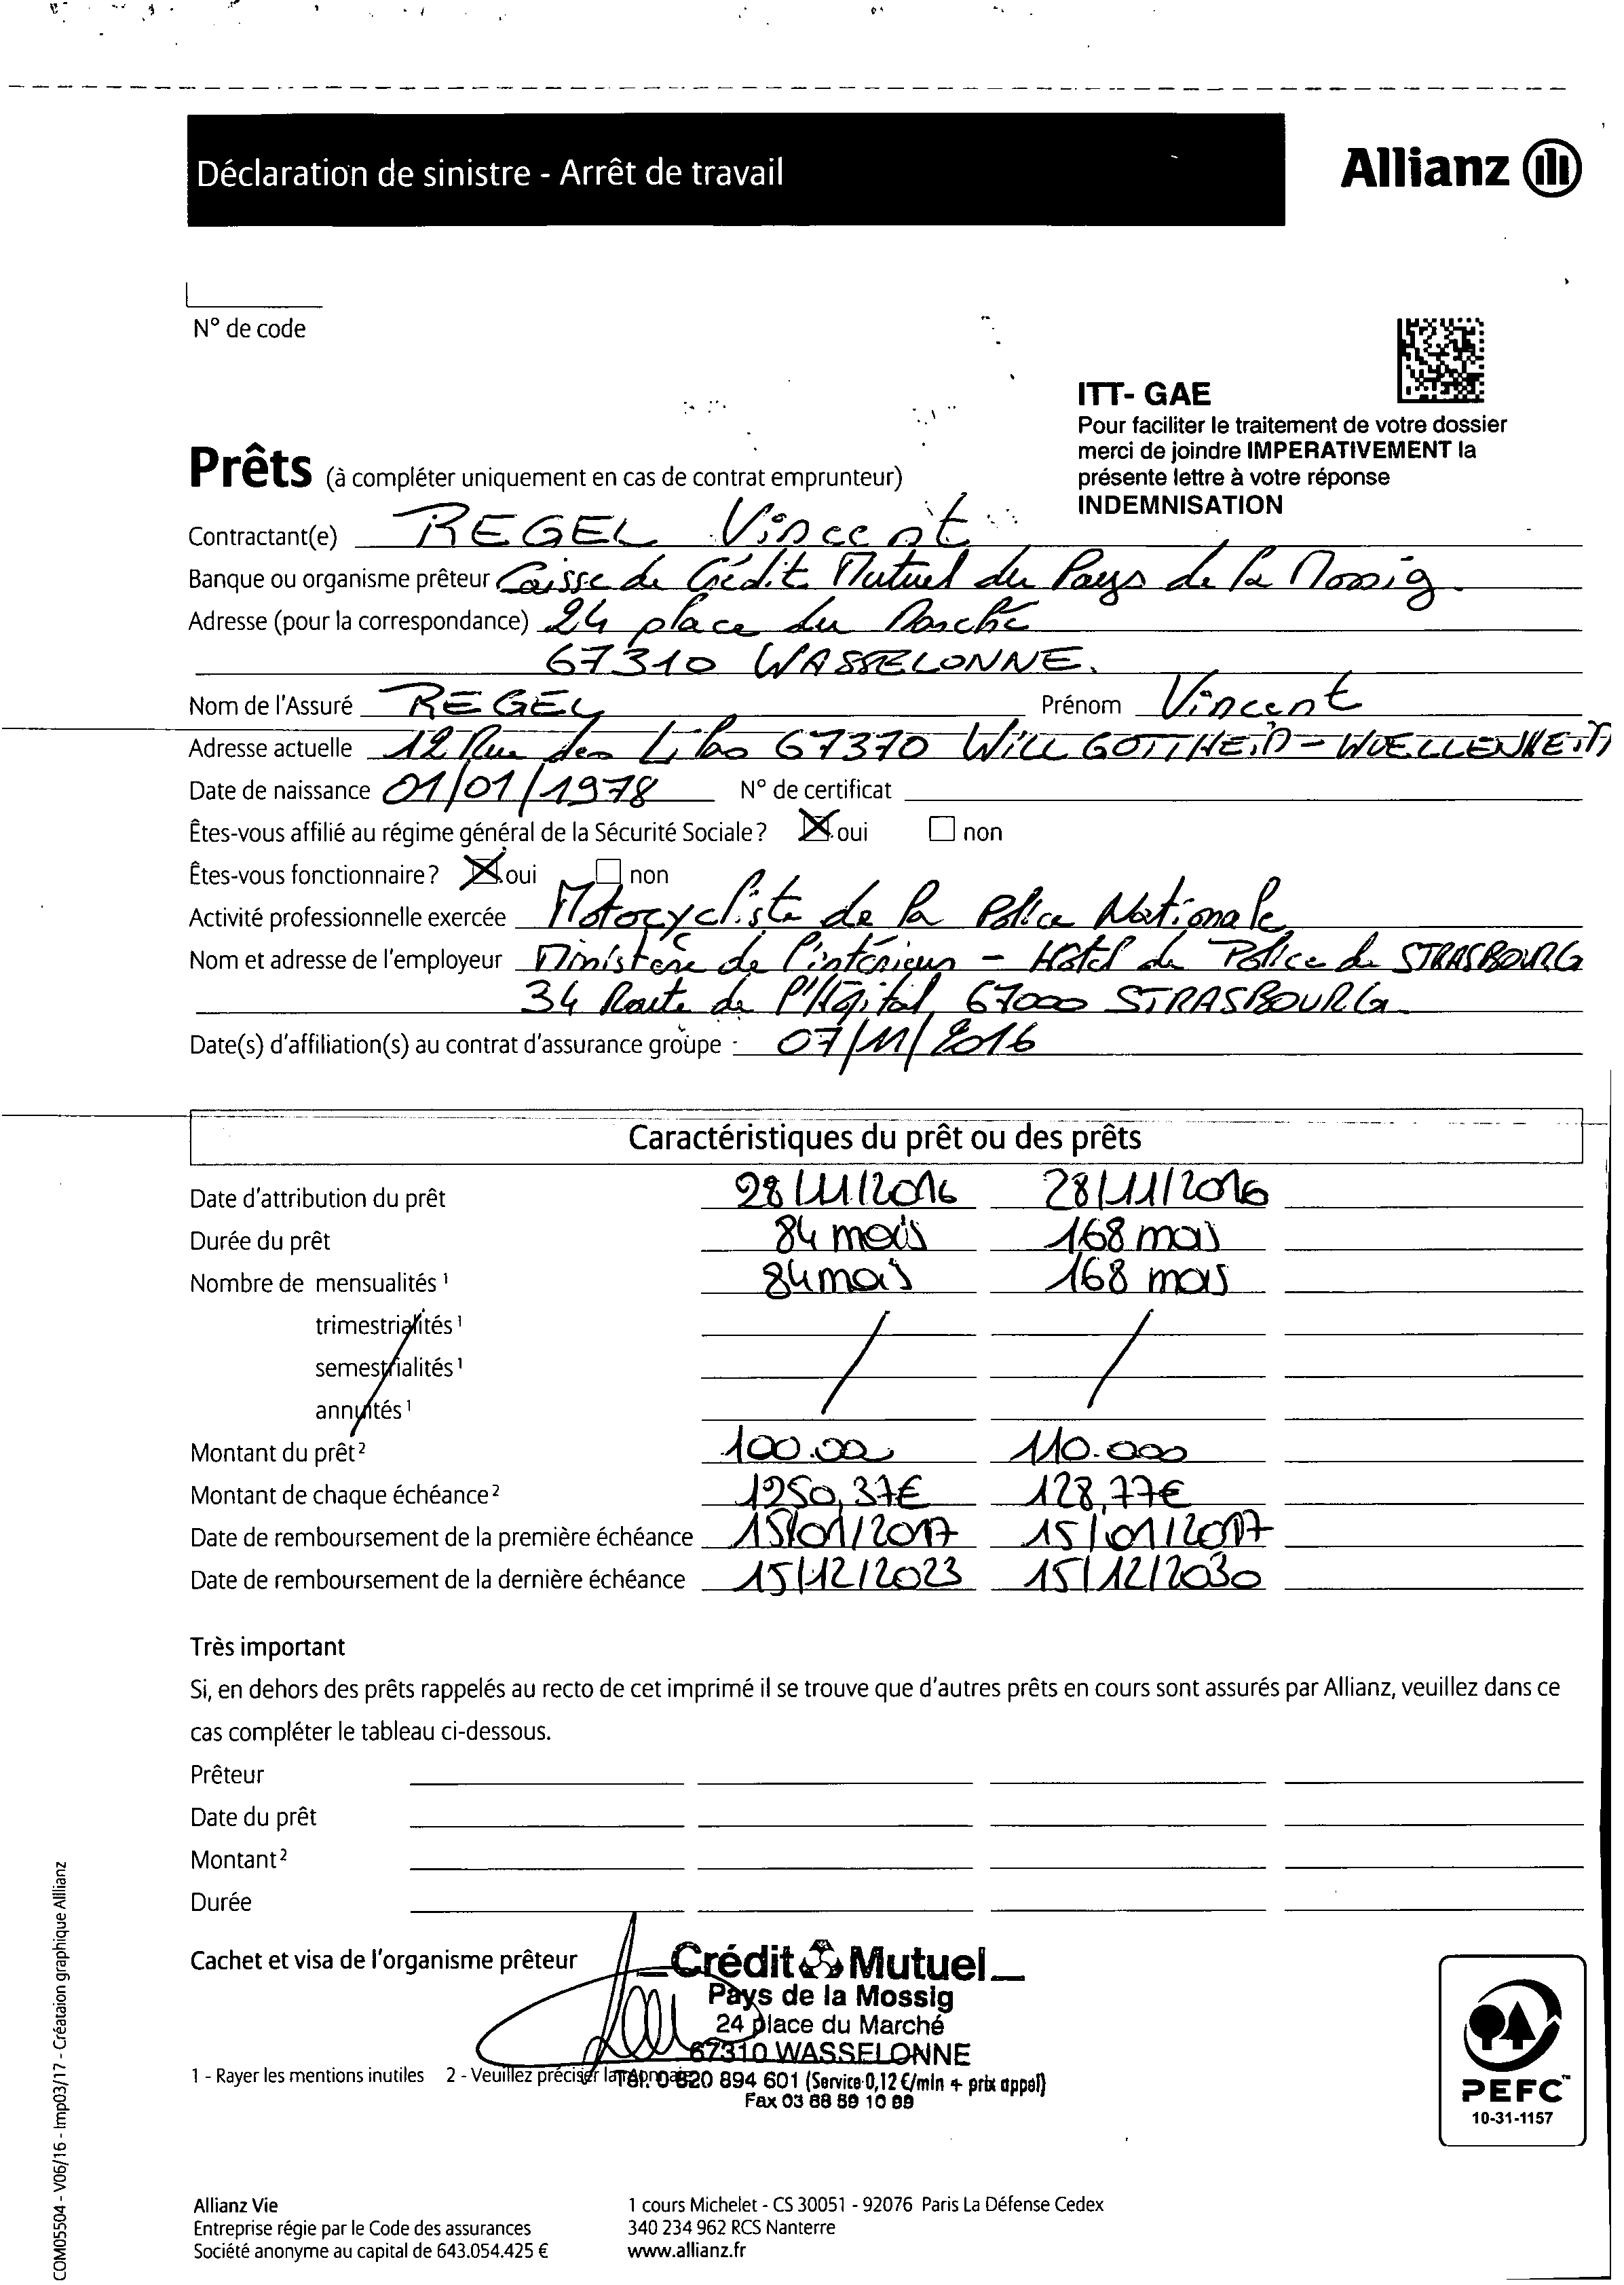 Déclaration de sinistre - Arrêt de travail
Allianz
N° de code
ITT- GAE
Pour faciliter le traitement de votre dossier
merci de joindre IMPERATIVEMENT la
présente lettre à votre réponse
INDEMNISATION
Prêts (à compléter uniquement en cas de contrat emprunteur)
Contractant(e) REGEL Vincent
Banque ou organisme prêteur Caisse de Crédit Mutuel du Pays de la Mossig.
Adresse (pour la correspondance) 24 place du Marché
67310 WASSELONNE.
Nom de l'Assuré REGEL Prénom Vincent
Adresse actuelle 12 Rue des Lilas 67370 WILLGOTTHEIM-WOELLENHEIM
Date de naissance 01/01/1978 N° de certificat
Êtes-vous affilié au régime général de la Sécurité Sociale? oui non
Êtes-vous fonctionnaire? oui non
Activité professionnelle exercée Motocycliste de la Police Nationale
Nom et adresse de l'employeur Ministère de l'intérieur - Hôtel de Police de STRASBOURG
34 Route de l'Hôpital, 67000 STRASBOURG
Date(s) d'affiliation(s) au contrat d'assurance groupe : 07/11/2016
Caractéristiques du prêt ou des prêts
Date d'attribution du prêt 28/11/2016 28/11/2016
Durée du prêt 84 mois 168 mois
Nombre de mensualités ¹ 84 mois 168 mois
trimestrialités ¹ / /
semestrialités ¹
annuités ¹
Montant du prêt ² 100.00 110.000
Montant de chaque échéance ² 1250,37€ 128,77€
Date de remboursement de la première échéance 15/01/2017 15/01/2017
Date de remboursement de la dernière échéance 15/12/2023 15/12/2030
Très important
Si, en dehors des prêts rappelés au recto de cet imprimé il se trouve que d'autres prêts en cours sont assurés par Allianz, veuillez dans ce
cas compléter le tableau ci-dessous.
Prêteur
Date du prêt
Montant ²
Durée
Cachet et visa de l'organisme prêteur
Crédit Mutuel
Pays de la Mossig
24 place du Marché
67310 WASSELONNE
Tél. 0 820 894 601 (Service 0,12 €/min + prix appel)
Fax 03 88 59 10 99
1 - Rayer les mentions inutiles 2 - Veuillez préciser la monnaie
PEFC™
10-31-1157
Allianz Vie
Entreprise régie par le Code des assurances
Société anonyme au capital de 643.054.425 €
1 cours Michelet - CS 30051 - 92076 Paris La Défense Cedex
340 234 962 RCS Nanterre
www.allianz.fr
COM05504 - V06/16 - Imp03/17 - Créataion graphique Allianz